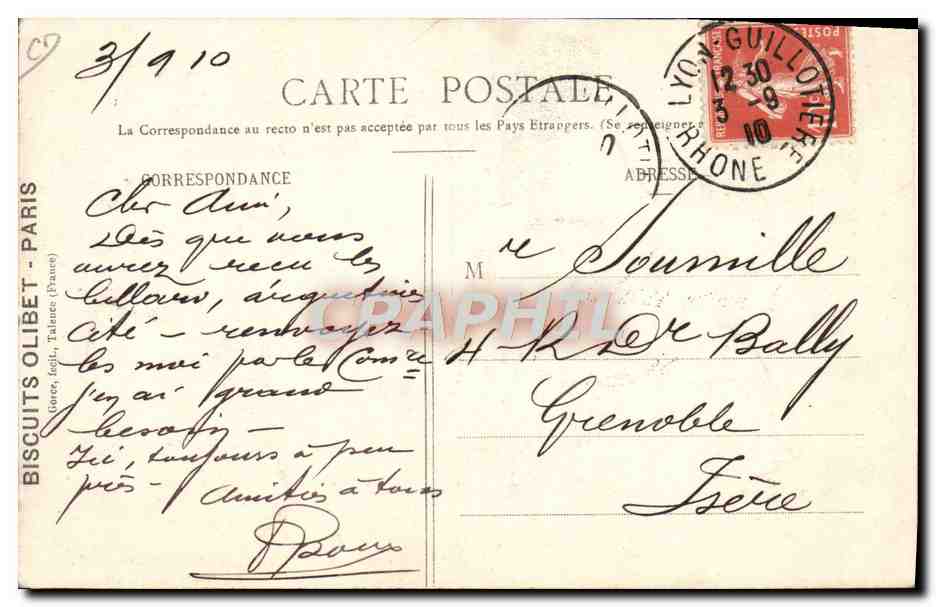 3/9 10
CARTE POSTALE
La Correspondance au recto n'est pas acceptée par tous les Pays Etrangers. (Se renseigner
LYON-GUILLOTIERE
12 30
3 -9
10
RHONE
CORRESPONDANCE
Cher Ami,
Dès que vous
aurez recu les
argentri
cité - renvoyez
les moi par le Comre
j'en ai grand
besoin -
Ici, toujours à peu
près - Amitiés à tous
Roux
ADRESSE
M r Soumille
4 R Dr Bally
Grenoble
Isère
BISCUITS OLIBET - PARIS
Gorce, fecit., Talence (France)
CRAPHIL